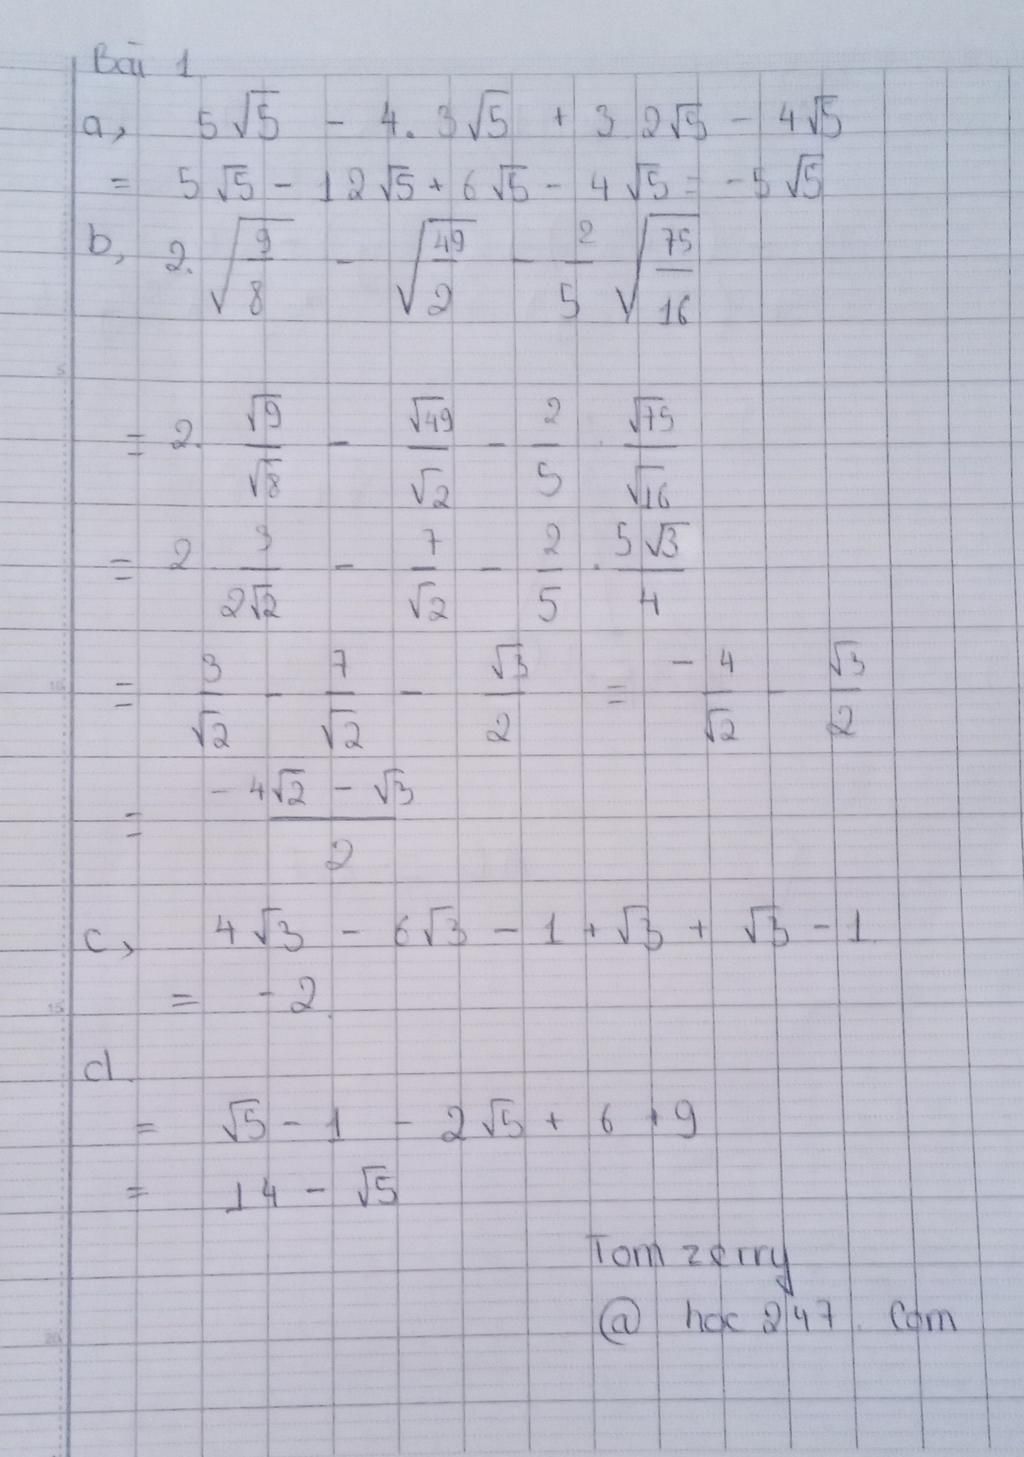 Bài 1
a, 5√5 - 4. 3√5 + 3 2√5 - 4√5
= 5√5 - 12√5 + 6√5 - 4√5 = -5√5
b, 2.√(9/8) - √(49/2) - 2/5 √(75/16)
= 2. √9/√8 - √49/√2 - 2/5 . √75/√16
= 2 3/(2√2) - 7/√2 - 2/5 . 5√3/4
= 3/√2 - 7/√2 - √3/2 = -4/√2 - √3/2
= (-4√2 - √3)/2
c, 4√3 - 6√3 - 1 + √3 + √3 - 1
= -2
d
= √5 - 1 - 2√5 + 6 + 9
= 14 - √5
Tom zerry
@ hoc 247. com